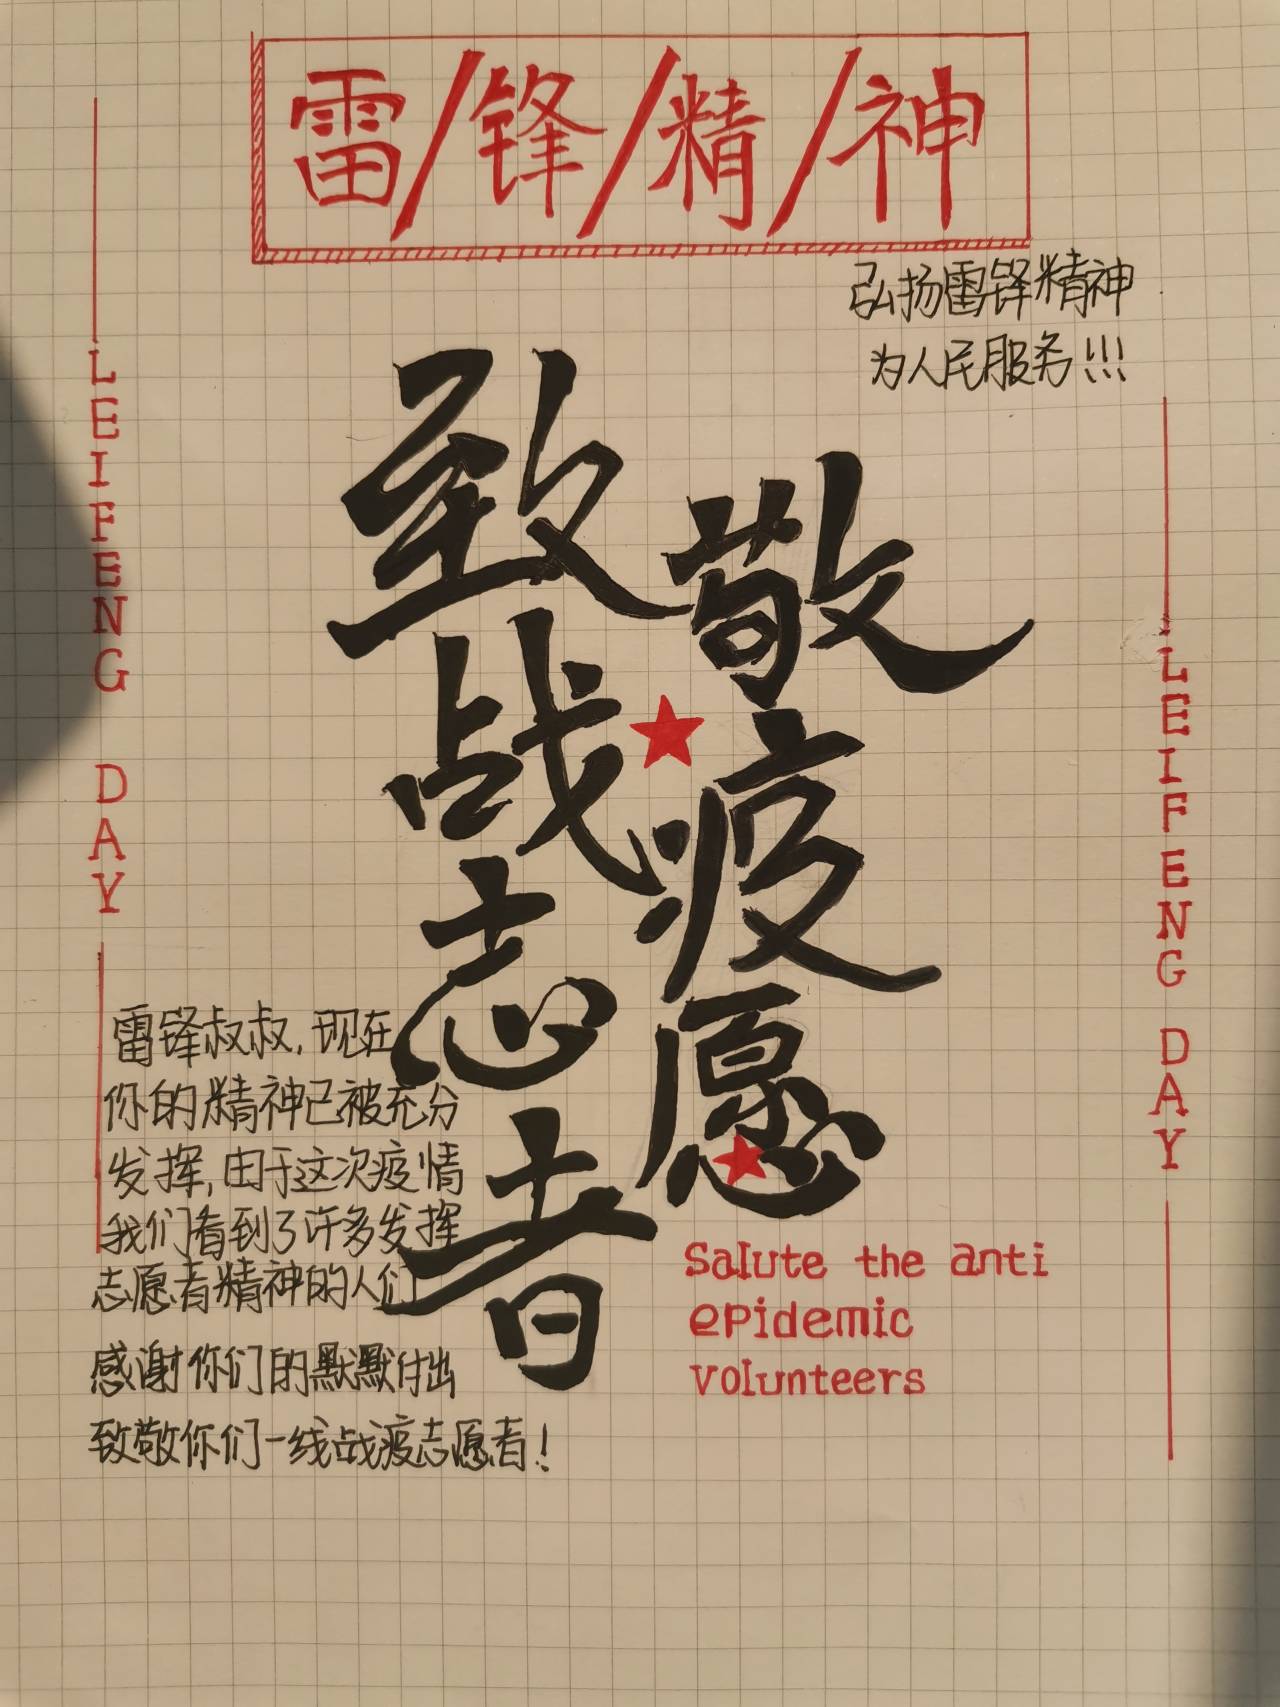 雷/锋/精/神
弘扬雷锋精神
为人民服务!!!
LEIFENG DAY
致敬
战疫
志愿
者
LEIFENG DAY
雷锋叔叔,现在
你的精神已被充分
发挥,由于这次疫情
我们看到了许多发挥
志愿者精神的人们
感谢你们的默默付出
致敬你们一线战疫志愿者!
Salute the anti
epidemic
volunteers